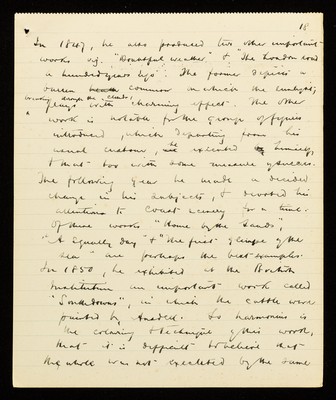 18
In 1847, he also produced two other important
works viz. "Doubtful weather" & "The London road
a hundred years ago". The former depicts a
barren common on which the sunlight,
breaking through the clouds,
plays with charming effect. The other
work is notable for the group of figures
introduced, which, departing from his
usual custom, he executed himself,
& that too with some measure of success.
The following year he made a decided
change in his subjects, & devoted his
attention to Coast scenery for a time.
Of these works "Home by the Sands",
"A Squally day" & "The first glimpse of the
sea" are perhaps the best examples.
In 1850, he exhibited at the British
Institution an important work called
"Southdowns", in which the cattle were
painted by Ansdell. So harmonious is
the coloring & technique of this work,
that it is difficult to believe that
the whole was not executed by the same